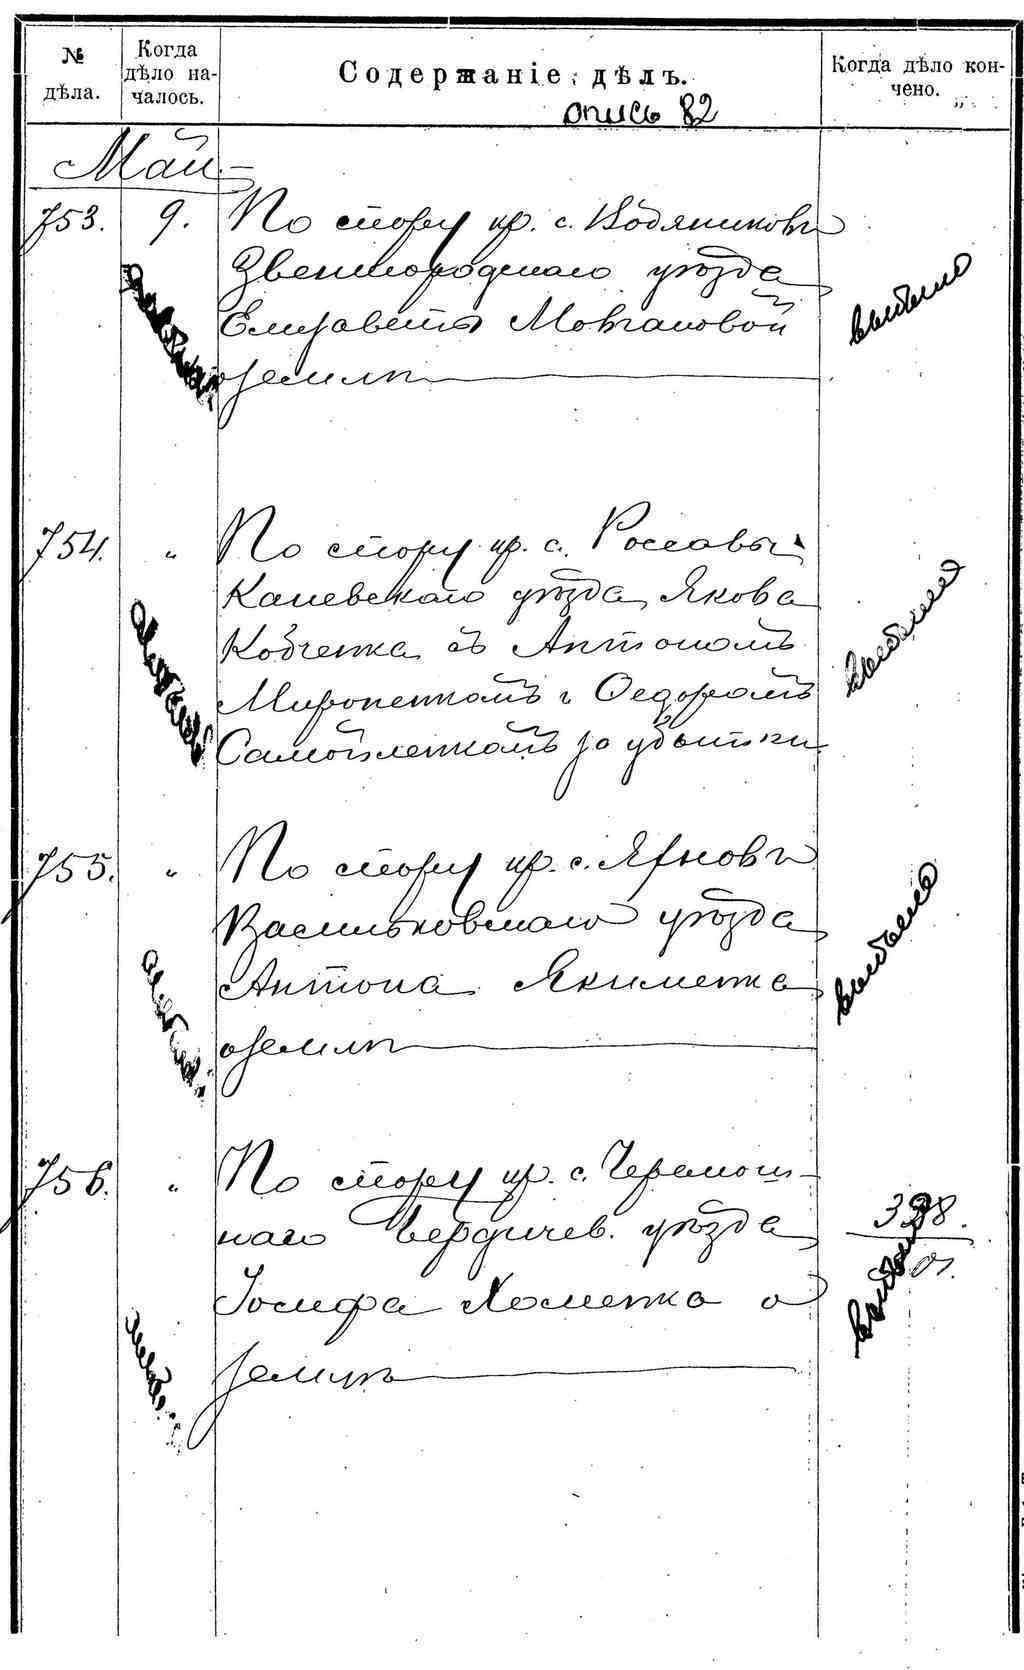 № дѣла.
Когда дѣло на-
чалось.
Содержаніе дѣлъ.
Когда дѣло кон-
чено.
опись 82
Май
753. 9. По спору кр. с. Водяниковъ
Звенигородскаго уѣзда
Елизаветы Мовчановой
о землѣ
выбыло
754. " По спору кр. с. Россавы
Каневскаго уѣзда Якова
Кобченка съ Антономъ
Миропенкомъ и Ѳедоромъ
Самойленкомъ за убытки
выбыло
755. " По спору кр. с.
Васильковскаго уѣзда
Антона Якименка
о землѣ
выбыло
756. " По спору кр. с. Черемош-
наго Бердичев. уѣзда
Іосифа Хоменка о
землѣ
выбыло